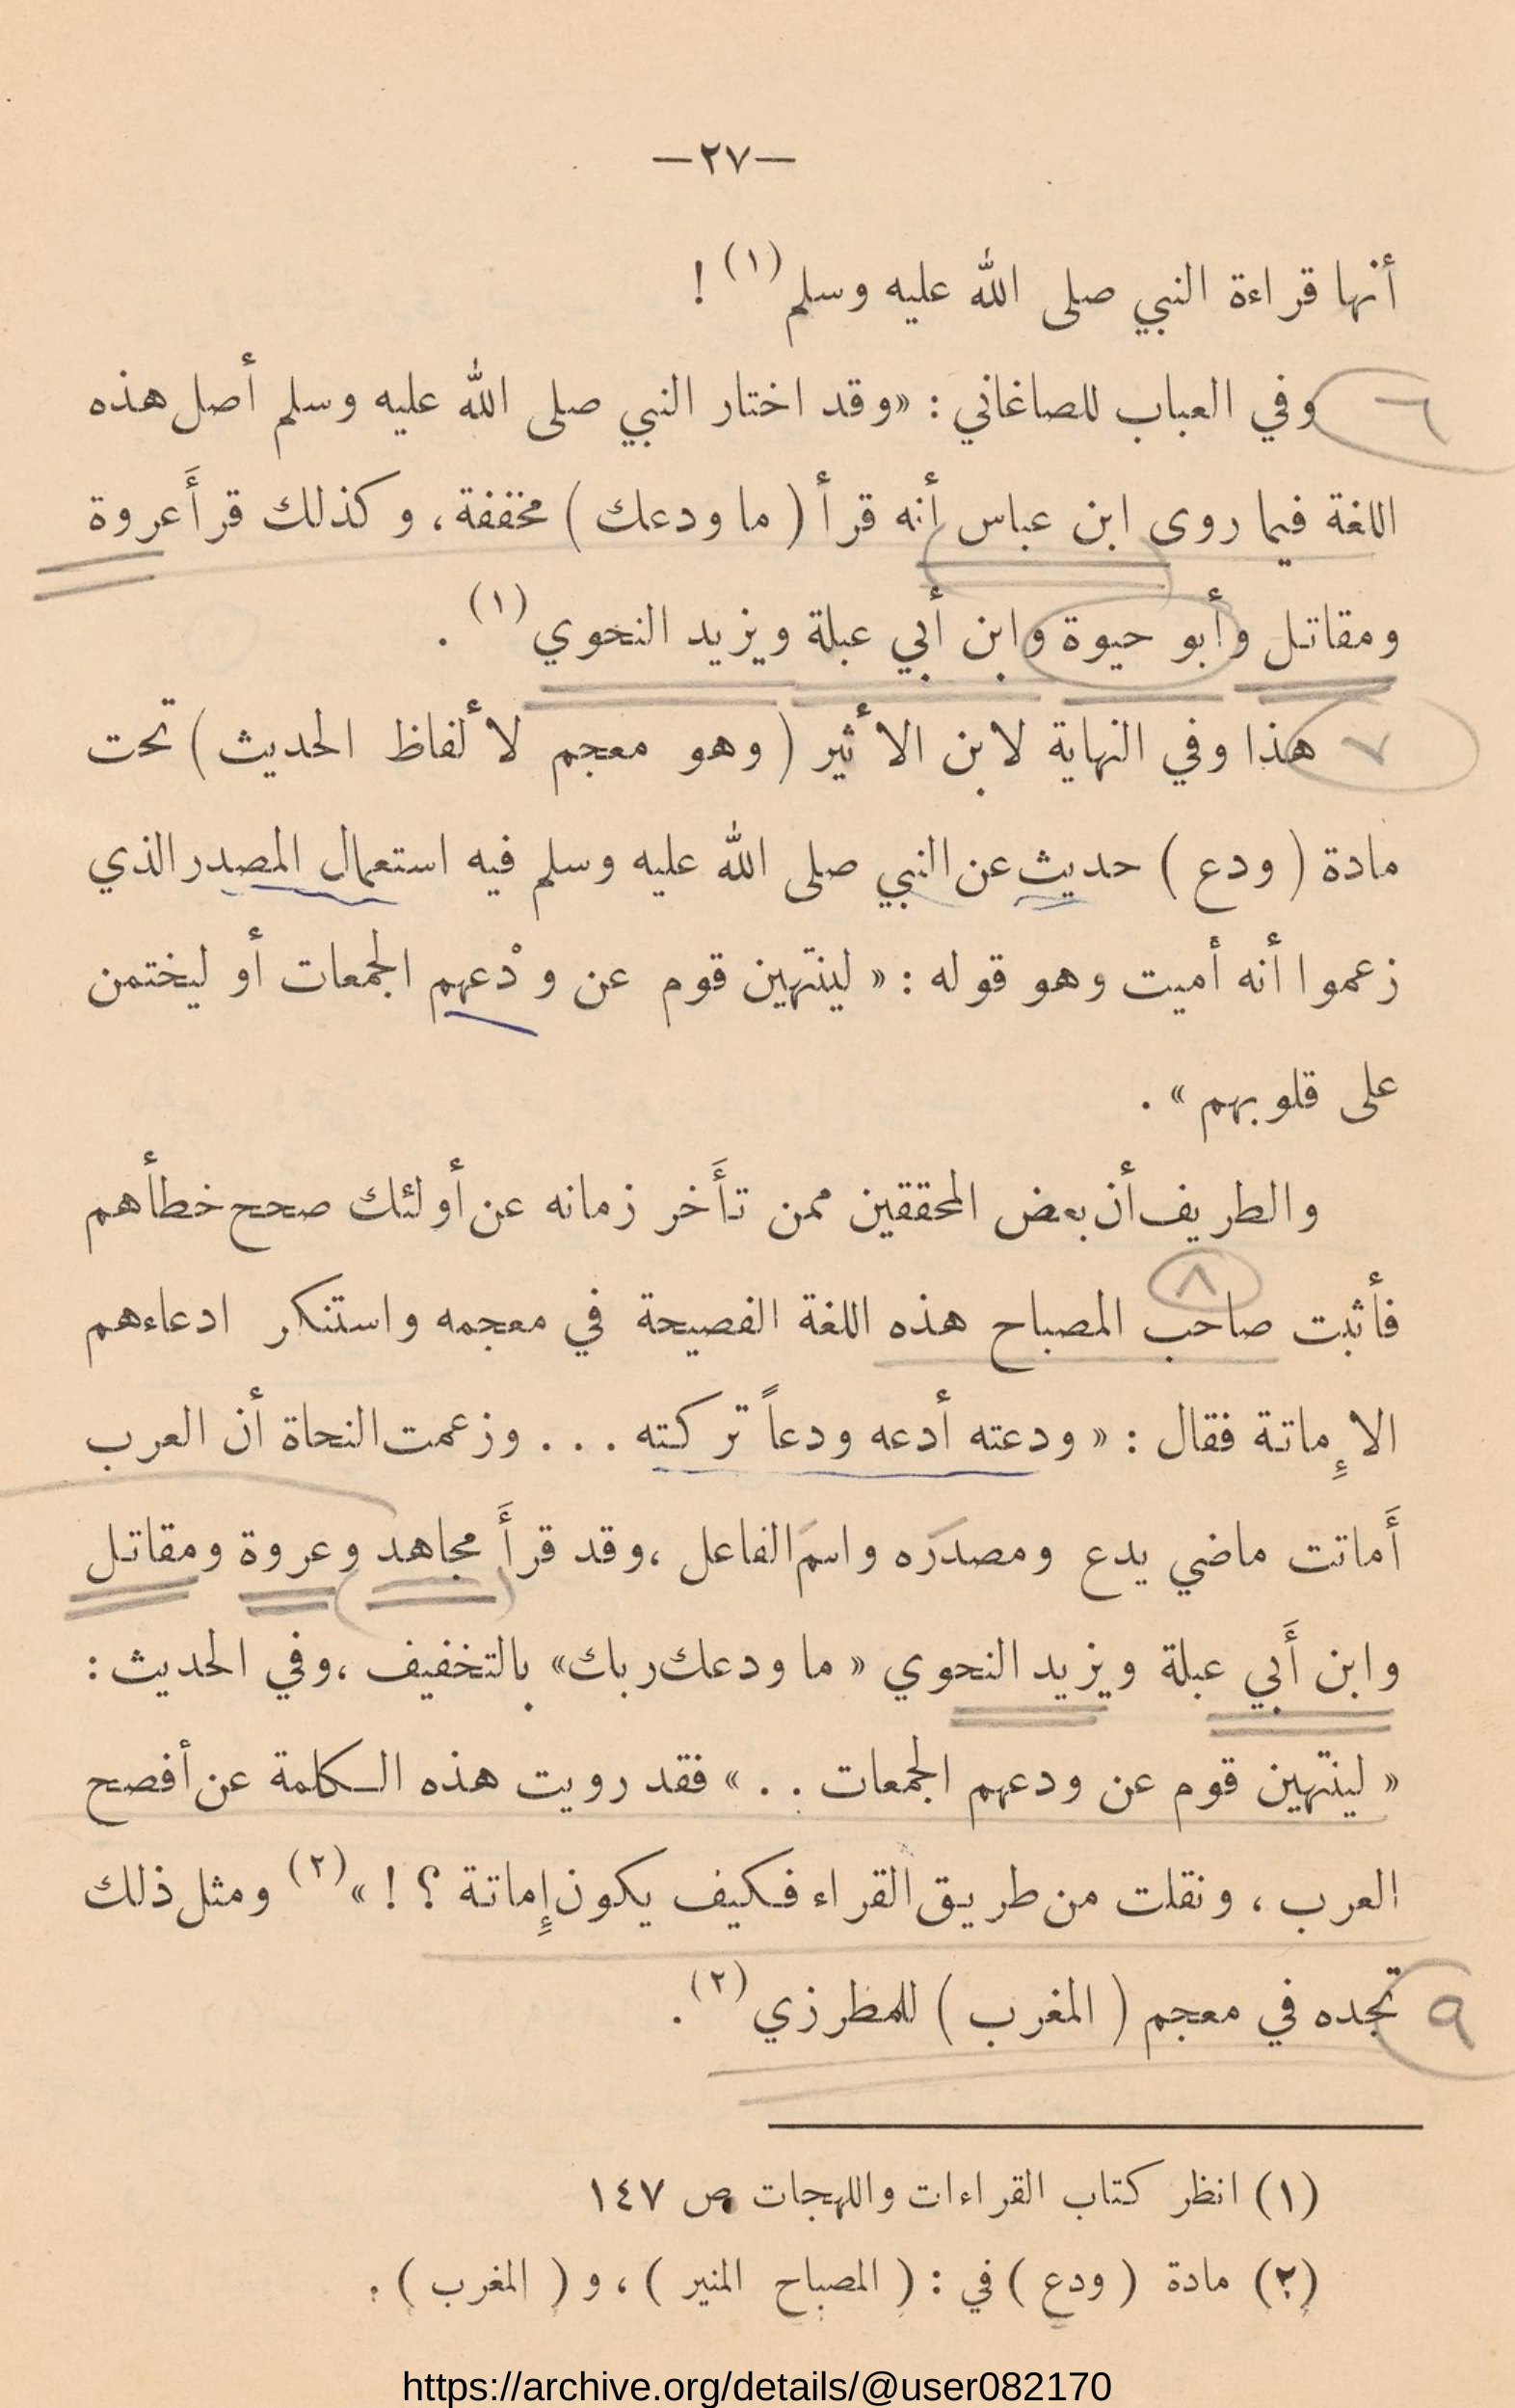 —٢٧—
أنها قراءة النبي صلى الله عليه وسلم (١) !
٦ وفي العباب للصاغاني : «وقد اختار النبي صلى الله عليه وسلم أصل هذه
اللغة فيما روى ابن عباس أنه قرأ ( ما ودعك ) مخففة ، وكذلك قرأَ عروة
ومقاتل وأبو حيوة وابن أبي عبلة ويزيد النحوي (١) .
٧ هذا وفي النهاية لابن الأثير ( وهو معجم لألفاظ الحديث ) تحت
مادة ( ودع ) حديث عن النبي صلى الله عليه وسلم فيه استعمال المصدر الذي
زعموا أنه أميت وهو قوله : « لينتهين قوم عن ودْعهم الجمعات أو ليختمن
على قلوبهم » .
والطريف أن بعض المحققين ممن تأَخر زمانه عن أولئك صحح خطأهم
٨
فأثبت صاحب المصباح هذه اللغة الفصيحة في معجمه واستنكر ادعاءهم
الإِماتة فقال : « ودعته أدعه ودعاً تركته . . . وزعمت النحاة أن العرب
أَماتت ماضي يدع ومصدَره واسمَ الفاعل ، وقد قرأَ مجاهد وعروة ومقاتل
وابن أَبي عبلة ويزيد النحوي « ما ودعك ربك» بالتخفيف ، وفي الحديث :
« لينتهين قوم عن ودعهم الجمعات . . » فقد رويت هذه الكلمة عن أفصح
العرب ، ونقلت من طريق القراء فكيف يكون إِماتة ؟ ! » (٢) ومثل ذلك
٩ تجده في معجم ( المغرب ) للمطرزي (٢) .
(١) انظر كتاب القراءات واللهجات ص ١٤٧
(٢) مادة ( ودع ) في : ( المصباح المنير ) ، و ( المغرب ) .
https://archive.org/details/@user082170